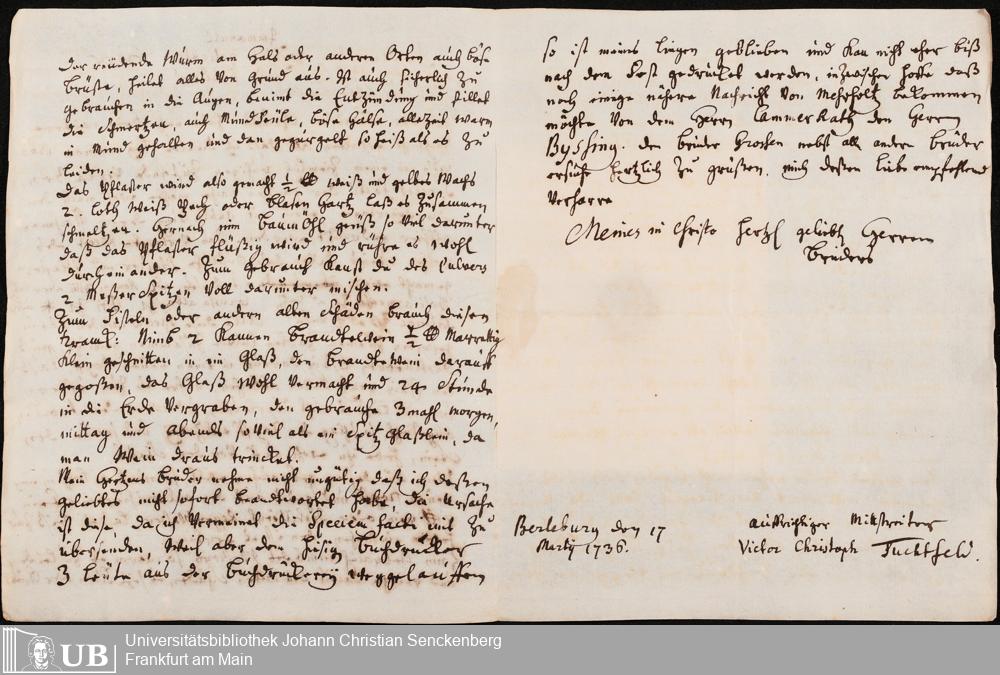 der reitende Wurm am Hals oder anderen Orten auch böse
brüste, heilet alles von Grund aus. Ist auch sicherlich zu
gebrauchen in die Augen, benimt die Entzündung und stillet
die Schmertzen, auch Mundfeule, böse Hälse, allezeit warm
in Mund gehalten und dan gegurgelt so heiß als es zu
leiden.
Das Pflaster wird also gemacht ½ ℔ weiß und gelbes Wachs
2. loth Weiß Pech oder blasen Hartz laß es zusammen
schmeltzen. Hernach nim Baum Öhl, geuß so viel darunter
daß das Pflaster flüßig wird und rühre es wohl
durcheinander. Zum gebrauch kanst du des Pulvers
2. Meßer Spitzen voll darunter mischen.
Zum Fisteln oder andern alten Schäden brauch diesen
Tranck: Nimb 2 Kannen Brandtewein ½ ℔ Marrettig
klein geschnitten in ein Glaß, den brandtewein darauff
gegoßen, das Glaß wohl vermacht und 24 Stunde
in die Erde vergraben, den gebrauche 3 mahl morgen,
mittag und Abends so viel als ein Spitz Gläßlein, da
man Wein draus trincket.
Mein Hertzens bruder nehme nicht ungütig daß ich deßen
geliebtes nicht sofort beandtwortet habe, die Ursache
ist diese, da ich vermeinet die Speciem facti mit zu
übersenden, weil aber dem hiesig. buchdrucker
3 leute aus der buchdruckerey weggelauffen
so ist meines liegen geblieben und kan nicht eher biß
nach dem Fest gedrucket werden, inzwischen hoffe daß
noch einige nähere Nachricht von Mehrholtz bekommen
möchte von dem Herrn CammerRath den Herrn
Byssing. den bruder Groschen nebst all. andern brüder
ersuche hertzlich zu grüßen. mich deßen liebe empfehlend
verharre
Meines in Christo hertzl geliebt Herrn
Bruders
Berleburg den 17
Martij 1736.
auffrichtiger Mittstreiter
Victor Christoph Tuchtfeld.
Universitätsbibliothek Johann Christian Senckenberg
Frankfurt am Main
UB